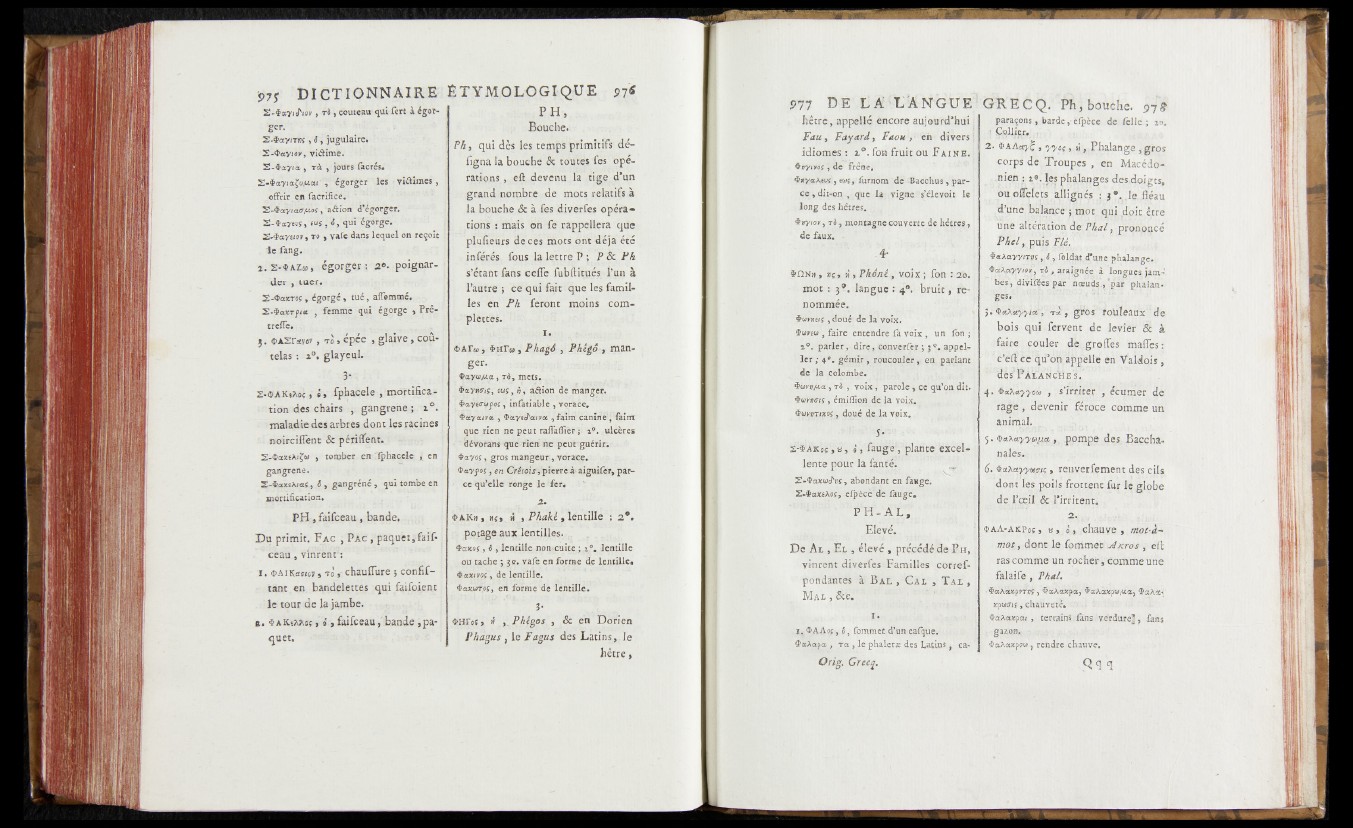 975 DICTIONNAIRE ÉTYMOLOGIQUE 976
Σ-Φαγιδιον, τὸ, couteau qui ſert à égor-
ger.
Σ-Φαγιτης, ὁ, jugulaire.
Σ-Φαγιον, victime.
Σ-Φαγια, τὰ, jours ſacrés.
Σ-Φαγιαζομαι, égorger les victimes,
offrir en ſacrifice.
Σ-Φαγιασμος, action d'égorger.
Σ-Φαγευς, εως, ὁ, qui égorge.
Σ-Φαγειον, το, vaſe dans lequel on reçoit
le ſang.
2. Σ-ΦΑΖω, égorger : 2°. poignar-
der, tuer.
Σ-Φακτος, égorgé, tué, aſſommé.
Σ-Φακτρια, femme qui égorge, Prê-
treſſe.
3. ΦΑΣΓανον, τὸ, épée, glaive, coû-
telas : 2°. glayeul.
3.
Σ-ΦΑΚελος, ὁ, ſphacele, mortifica-
tion des chairs, gangrene ; 2°.
maladie des arbres dont les racines
noirciſſent & périſſent.
Σ-Φακελιζω, tomber en ſphacele, en
gangrene.
Σ-Φακελιας, ὁ, gangréné, qui tombe en
mortification.
PH, faiſceau, bande.
Du primit. FAC, PAC, paquet, faiſ-
ceau, vinrent :
1. ΦΑΙΚασιον, τὸ, chauſſure ; conſiſ-
tant en bandelettes qui faiſoient
le tour de la jambe.
2. ΦΑΚελλος, ὁ, faiſceau, bande, pa-
quet.
PH,
Bouche.
Ph, qui dès les temps primitifs dé-
ſigna la bouche & toutes ſes opé-
rations, eſt devenu la tige d'un
grand nombre de mots relatifs à
la bouche & à ſes diverſes opéra-
tions : mais on ſe rappellera que
pluſieurs de ces mots ont déja été
inférés ſous la lettre P ; P & Ph
s'étant ſans ceſſe ſubſtitués l'un à
l'autre ; ce qui fait que les famil-
les en Ph ſeront moins com-
plettes.
1.
ΦΑΓω, ΦΗΓω, Phagô, Phégô, man-
ger.
Φαγωμα, τὸ, mets.
Φαγησις, εως, ἡ, action de manger.
Φαγεσωρος, inſatiable, vorace.
Φαγαινα, Φαγεδαινα, faim canine, faim
que rien ne peut raſſaſier ; 2°. ulcères
dévorans que rien ne peut guérir.
Φαγος, gros mangeur, vorace.
Φαγρος, en Crétois, pierre à aiguiſer, par-
ce qu'elle ronge le fer.
2.
ΦΑΚη, ης, ἡ, Phaké, lentille : 2°.
potage aux lentilles.
Φακος, ὁ, lentille non-cuite ; 2°. lentille
ou tache ; 3°. vaſe en forme de lentille.
Φακινος, de lentille.
Φακωτος, en forme de lentille.
3.
ΦΗΓος, ἡ, Phégos, & en Dorien
Phagus, le Fagus des Latins, le
hêtre,
977 DE LA LANGUE GRECQ. Ph, bouche. 978
hêtre, appellé encore aujourd'hui
Fau, Fayard, Faou, en divers
idiomes : 2°. ſon fruit ou FAINE.
Φηγινος, de frêne.
Φηγαλευς, εως, ſurnom de Bacchus, par-
ce, dit-on, que la vigne s'élevoit le
long des hêtres.
Φηγιον, τὸ, montagne couverte de hêtres,
de faux.
4.
ΦΩΝη, ης, ἡ, Phôné, voix ; ſon : 2°.
mot : 3°. langue : 4°. bruit, re-
nommée.
Φωνηεις, doué de la voix.
Φωνεω, faire entendre ſa voix, un ſon ;
2°. parler, dire, converſer ; 3°. appel-
ler ; 4°. gémir, roucouler, en parlant
de la colombe.
Φωνημα, τὸ, voix, parole, ce qu'on dit.
Φωνησις, émiſſion de la voix.
Φωνητικος, doué de la voix.
5.
Σ-ΦΑΚος, ου, ὁ, ſauge, plante excel-
lente pour la ſanté.
Σ-Φακωδης, abondant en ſauge.
Σ-Φακελος, eſpèce de ſauge.
PH-AL,
Elevé.
De AL, EL, élevé, précédé de PH,
vinrent diverſes Familles correſ-
pondantes à BAL, CAL, TAL,
MAL, &c.
1.
1. ΦΑΛος, ὁ, ſommet d'un caſque.
Φαλαρα, τα, le phaleræ des Latins, ca-
Orig. Grecq.
paraçons, barde, eſpèce de ſelle ; 2°.
Collier.
2. ΦΑΛαγξ, γγος, ἡ, Phalange, gros
corps de Troupes, en Macédo-
nien : 2°. les phalanges des doigts,
ou oſſelets allignés : 3°. le fléau
d'une balance ; mot qui doit être
une altération de Phal, prononcé
Phel, puis Flé.
Φαλαγγιτης, ὁ, ſoldat d'une phalange.
Φαλαγγιον, τὸ, araignée à longues jam-
bes, diviſées par nœuds, par phalan-
ges.
3. Φαλαγγια, τὰ, gros rouleaux de
bois qui ſervent de levier & à
faire couler de groſſes maſſes :
c'eſt ce qu'on appelle en Valdois,
des PALANCHES.
4. Φαλαγγοω, s'irriter, écumer de
rage, devenir féroce comme un
animal.
5. Φαλαγγωμα, pompe des Baccha-
nales.
6. Φαλαγγωσις, renverſement des cils
dont les poils frottent ſur le globe
de l'œil & l'irritent.
2.
ΦΑΛ-ΑΚΡος, ου, ὁ, chauve, mot-à-
mot, dont le ſommet Akros, eſt
ras comme un rocher, comme une
falaiſe, Phal.
Φαλακροτης, Φαλακρα, Φαλακρωμα, Φαλα-
κρωσις, chauveté.
Φαλακραι, terrains ſans verdure, ſans
gazon.
Φαλακροω, rendre chauve.
Qqq